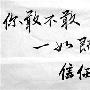 你敢不敢
一如既
信任